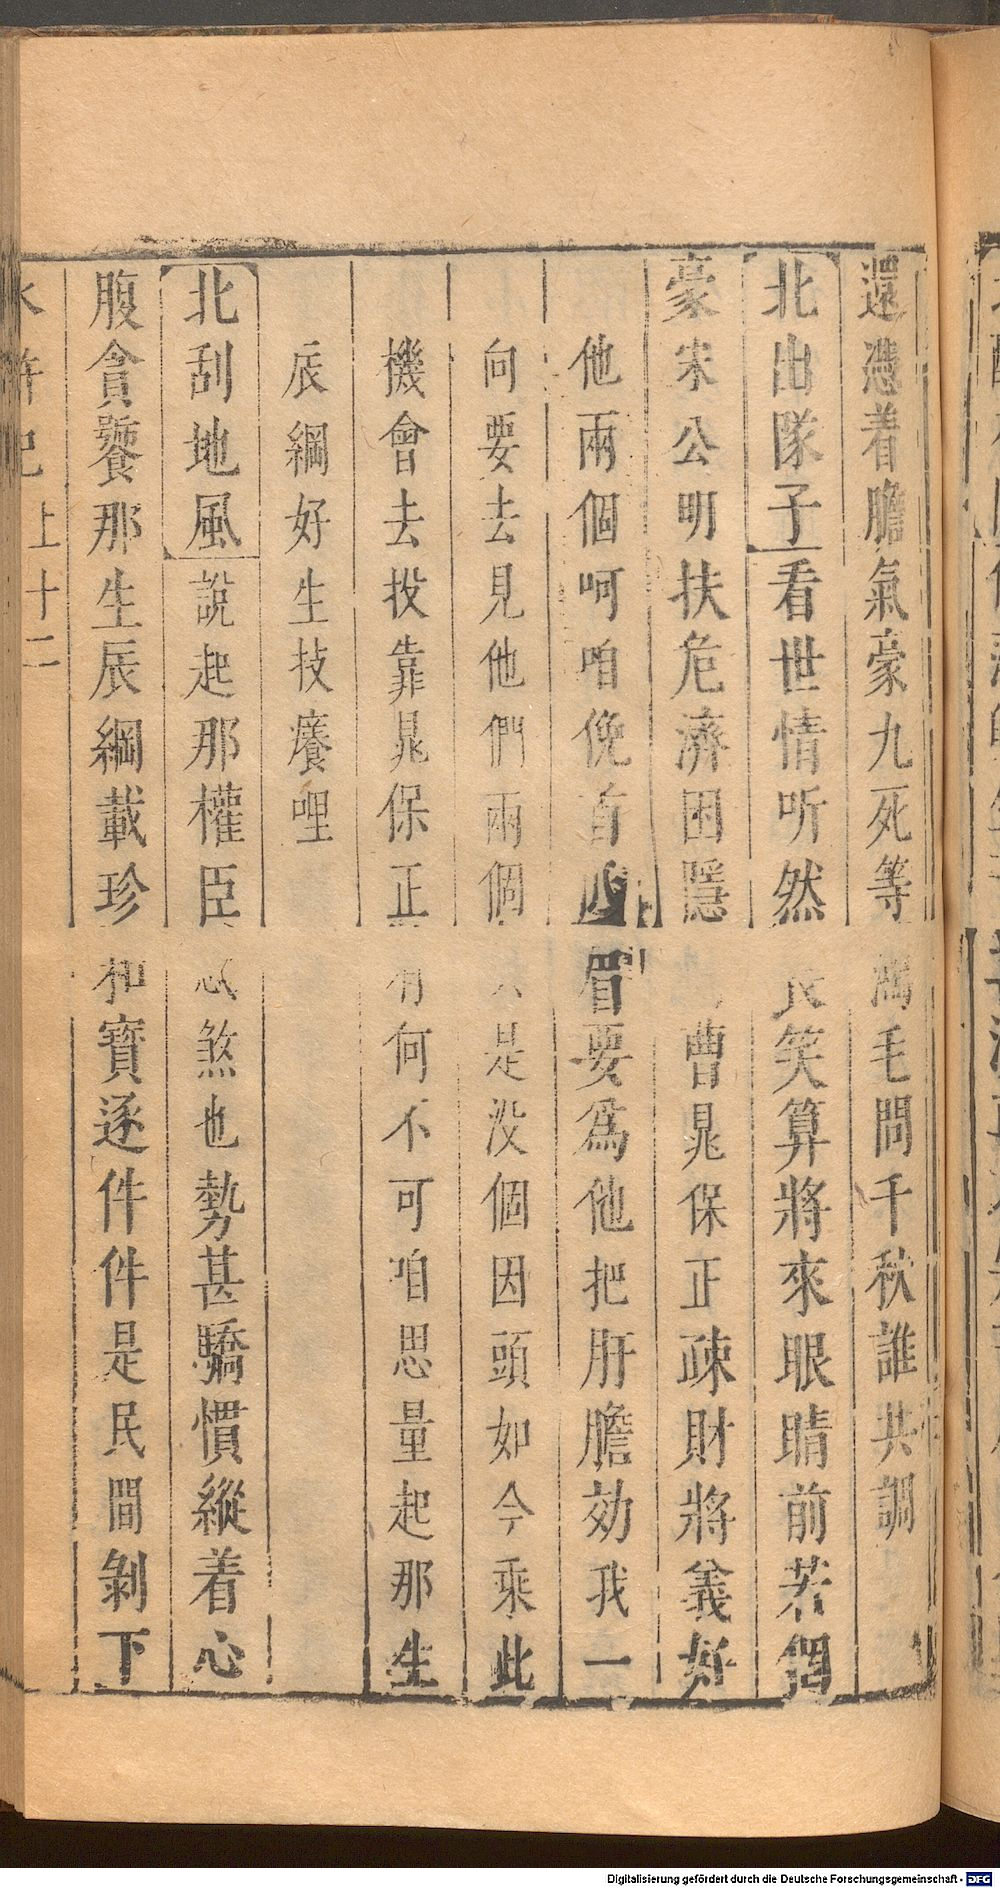 還憑着膽氣豪九死等鴻毛問千秋誰共調
北出隊子看世情听然長笑算將來眼睛前若個
豪宋公明扶危濟困隱曹晁保正疎財將義好
他兩個呵咱俛首眉要爲他把肝膽効我一
向要去見他們兩個只是没個因頭如今乘此
機會去投靠晁保正有何不可咱思量起那生
辰綱好生技癢哩
北刮地風說起那權臣忒煞也勢甚驕慣縱着心
腹貪饕那生辰綱載珍和寶逐件件是民間剝下
水滸記上十二
Digitalisierung gefördert durch die Deutsche Forschungsgemeinschaft - DFG